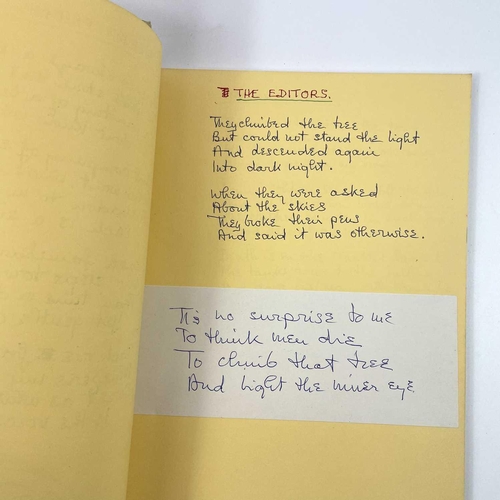 THE EDITORS.
They climbed the tree
But could not stand the light
And descended again
Into dark night.
When they were asked
About the skies
They broke their pens
And said it was otherwise.
Tis no surprise to me
To think men die
To climb that tree
And light the inner eye